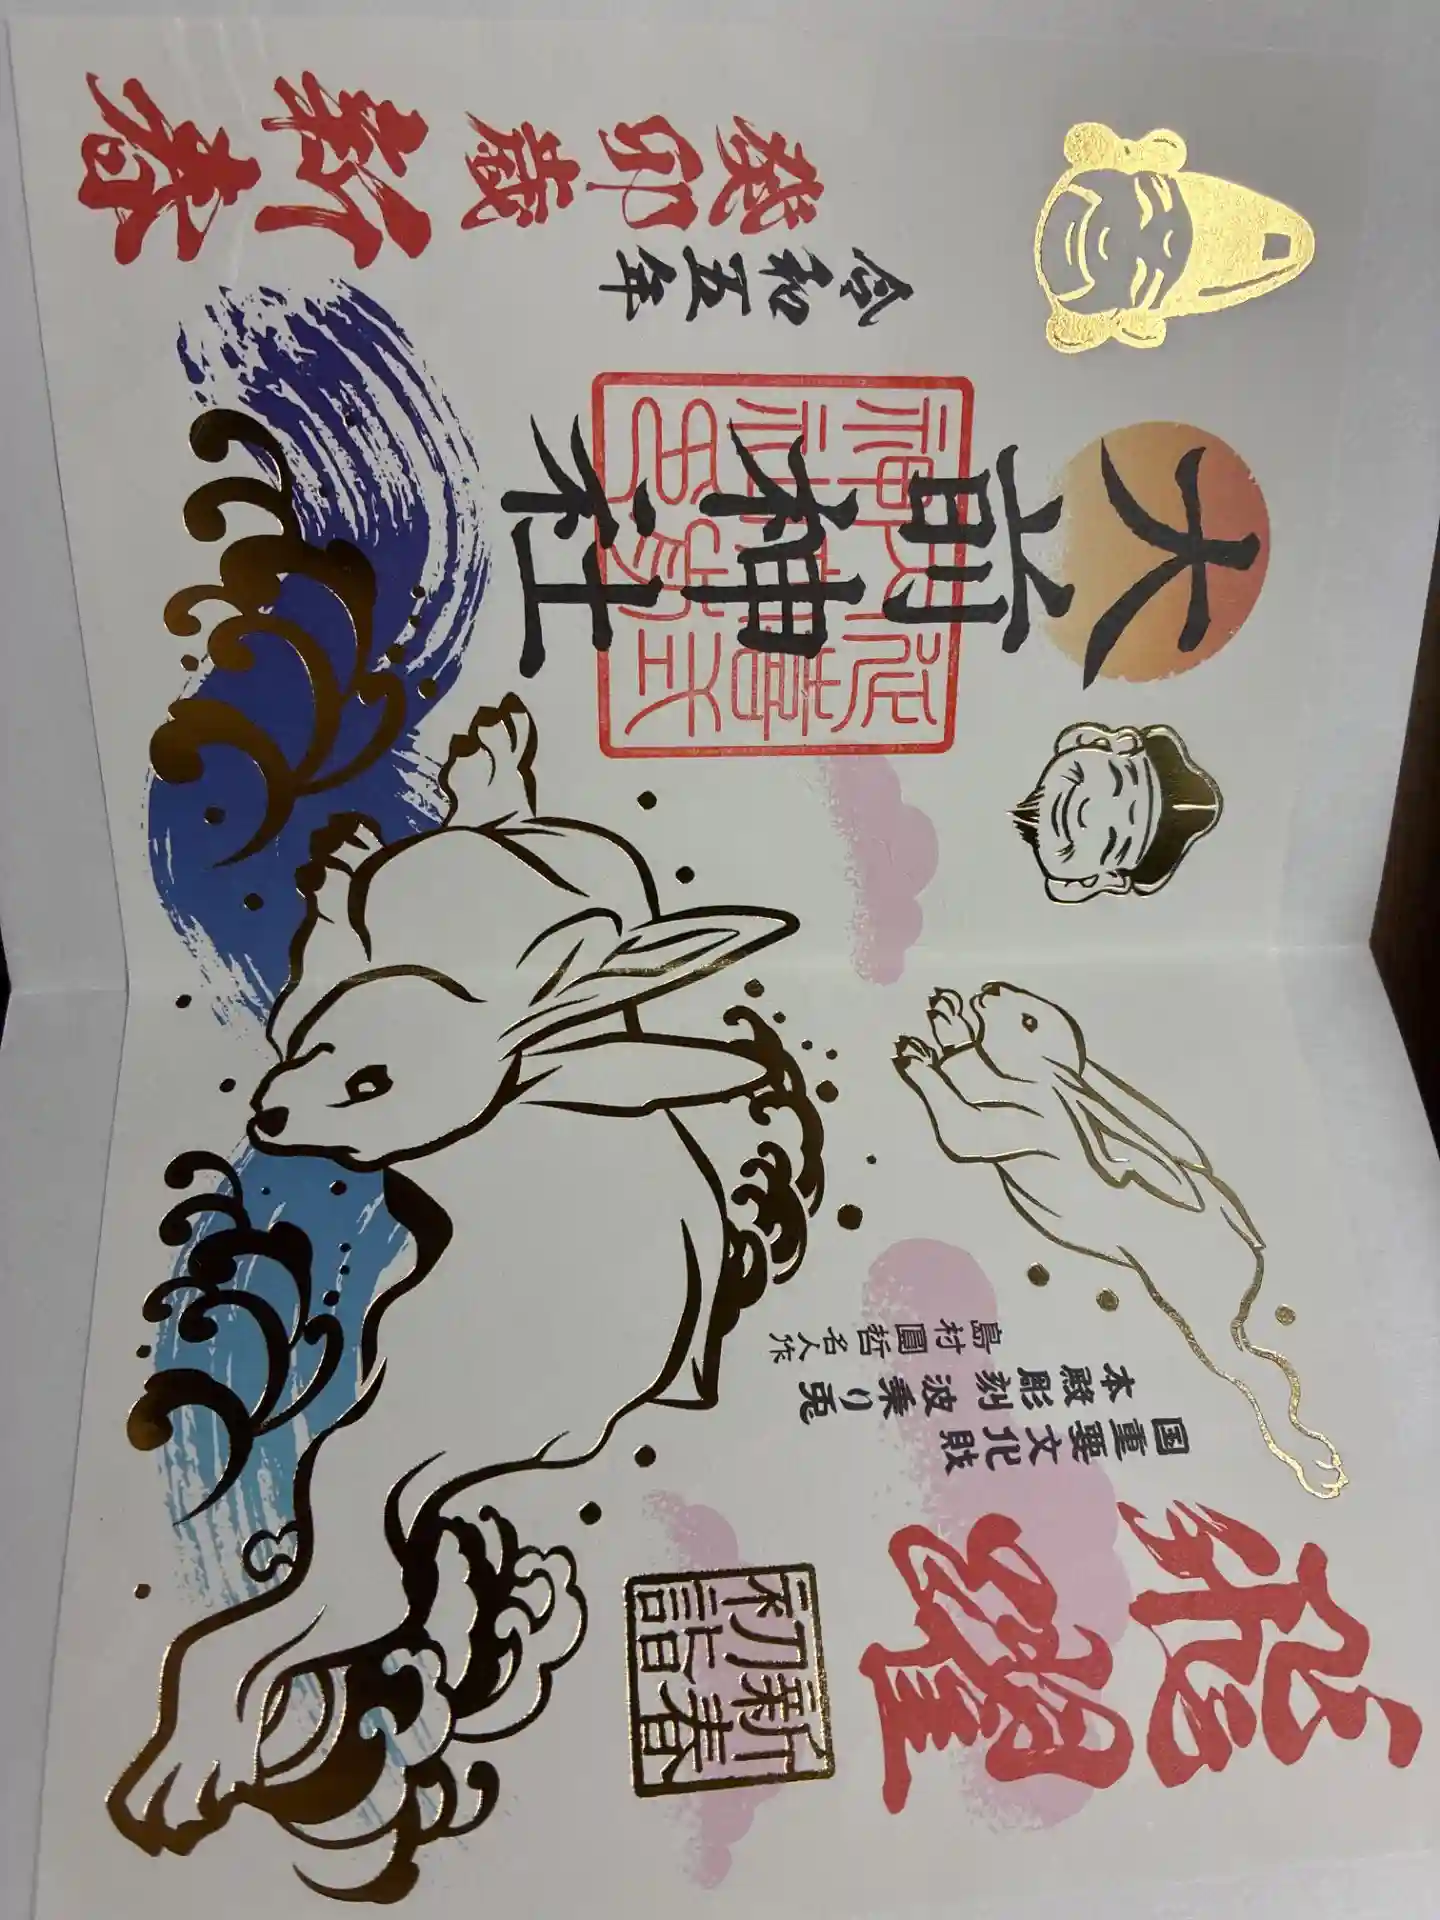 飛躍
新春
初詣
国重要文化財
本殿彫刻 波乗り兎
島村圓哲名人作
大前神社
令和五年
癸卯歳
新春